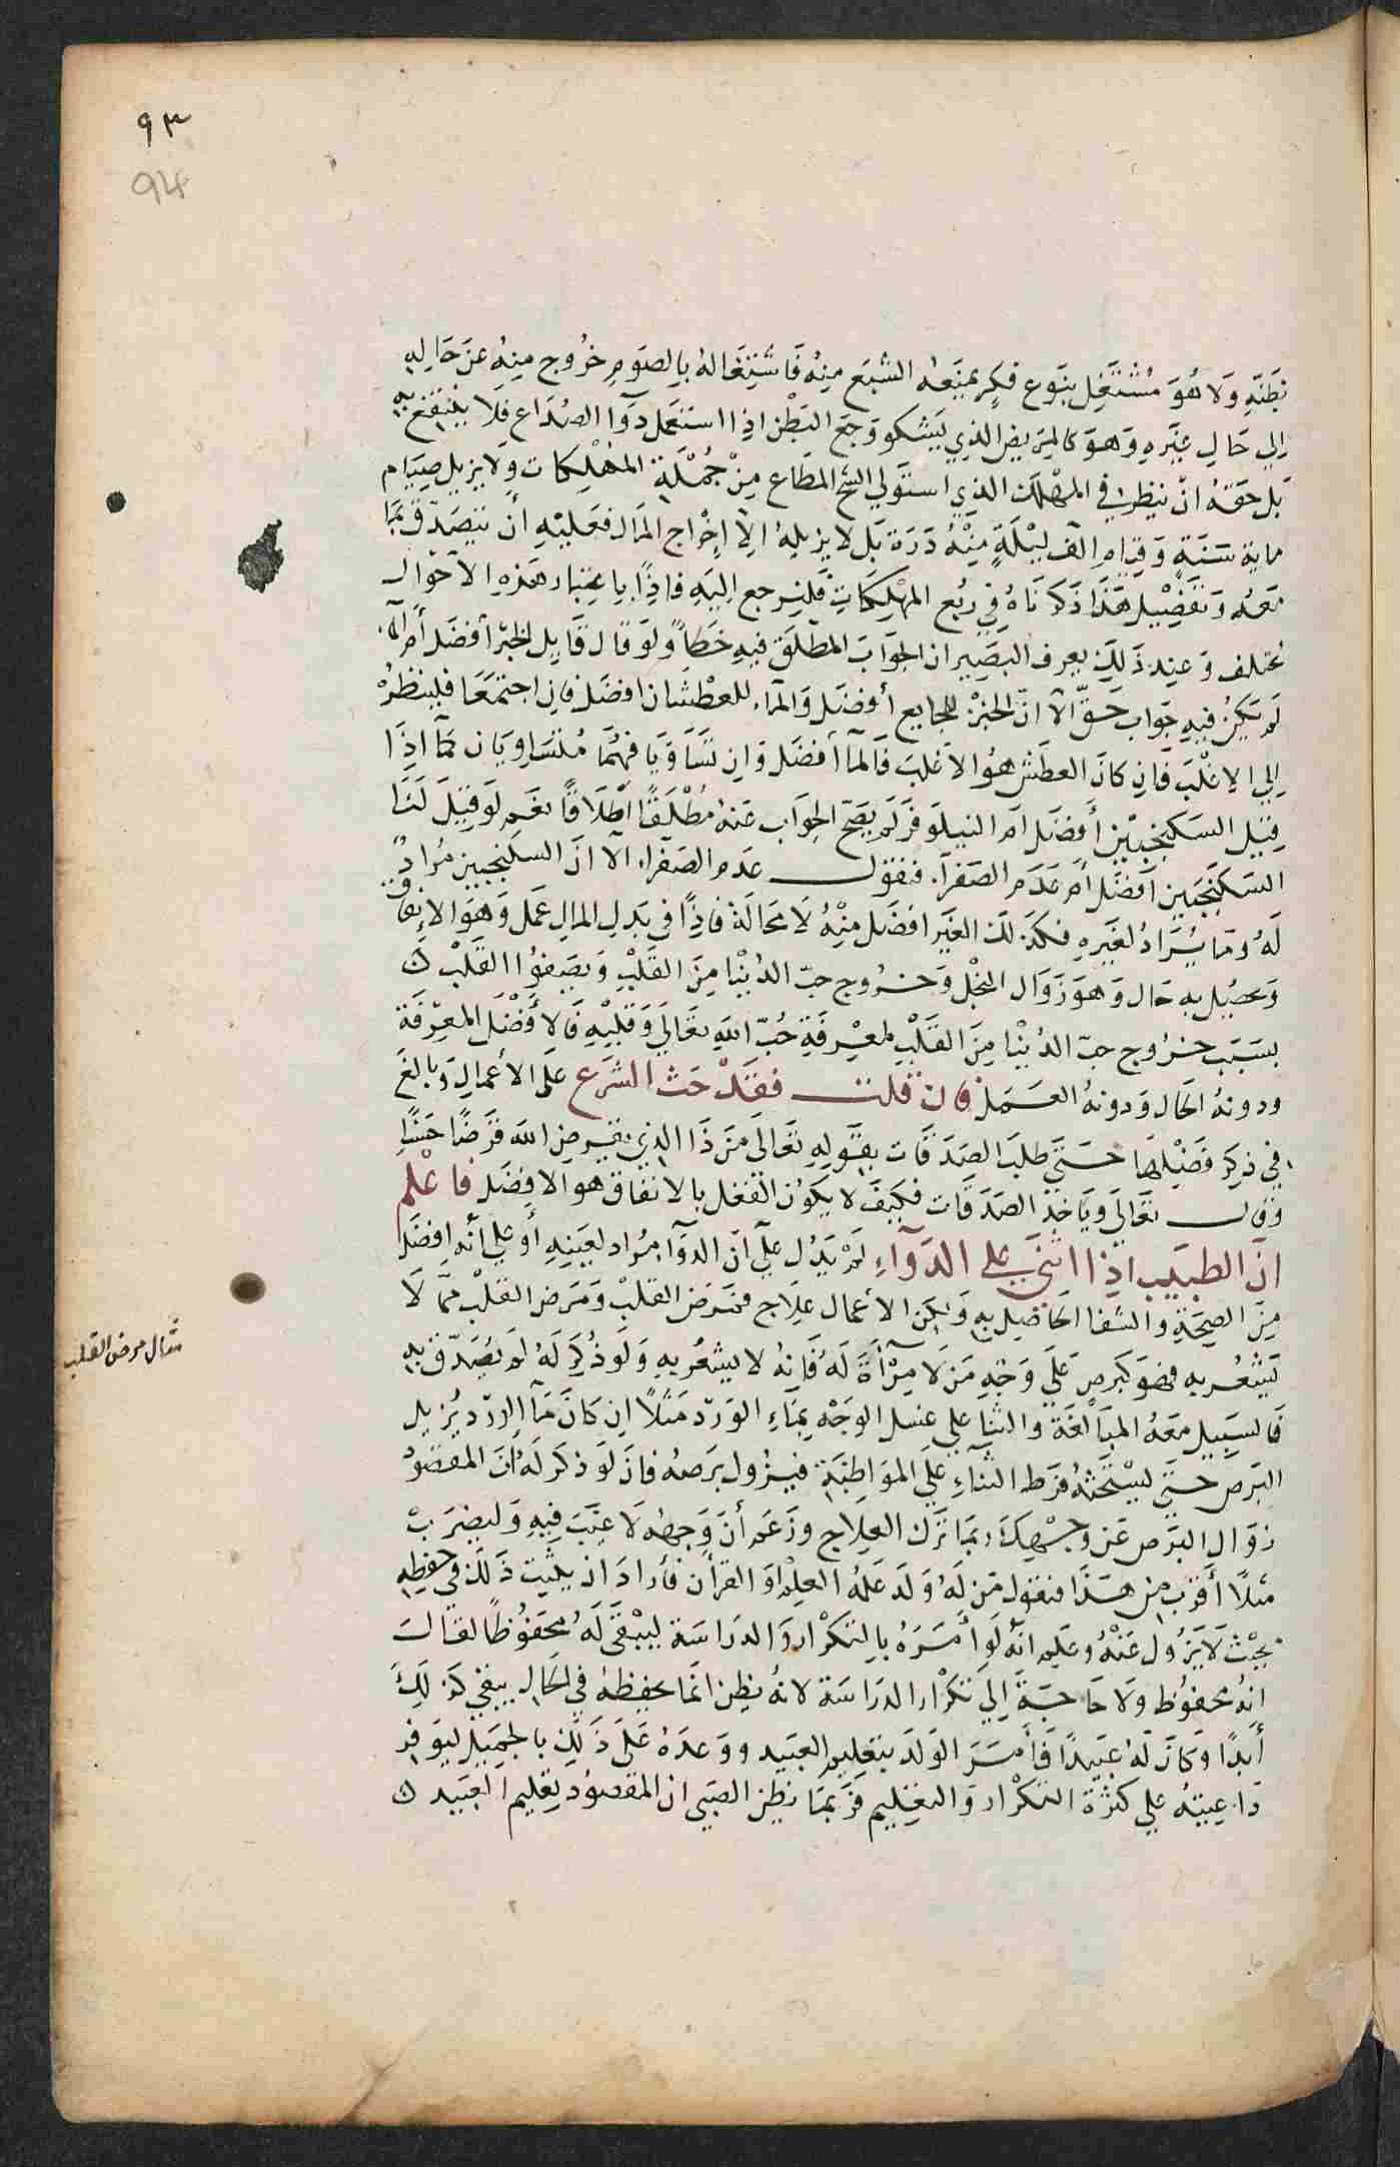 ٩٣
94
بطنه ولا هو مشتغل بنوع فكر يمنعه الشبع منه فاشتغاله بالصوم خروج منه عن حاله
الي حال غيره وهو كالمريض الذي يشكو وجع البطن اذا استعمل دوآ الصداع فلا ينتفع به
بل حقه ان ينظر في المهلك الذي استولي الشح المطاع من جملة المهلكات ولا يزيل صيام
ماية سنة وقيام الف ليلة منه ذرة بل لا يزيله الا اخراج المال فعليه أن يتصدق بما
معه وتفصيل هذا ذكرناه في ربع المهلكات فليرجع اليه فاذًا باعتبار هذه الاحوال
يختلف وعند ذلك يعرف البصير ان الجواب المطلق فيه خطأ ولو قال قايل الخبز أفضل أم الما
لم يكن فيه جواب حق الا ان الخبز للجايع أفضل والماء للعطشان افضل فان اجتمعا فلينظر
الي الاغلب فان كان العطش هو الاغلب فالمآ أفضل وان تساويا فهما متساويان كما اذا
قيل السكنجبين أفضل ام النيلوفر لم يصح الجواب عنه مطلقًا اطلاقًا نعم لو قيل لنا
السكنجبين افضل أم عدم الصفرآء فنقول عدم الصفراء الا ان السكنجبين مرادٌ
له وما يراد لغيره فكذلك الغير افضل منه لا محالة فاذًا في بدل المال عمل وهو الانفاق
ويحصل به حال وهو زوال البخل وخروج حب الدنيا من القلب ويصفوا القلب
بسبب خروج حب الدنيا من القلب لمعرفة حُبّ الله تعالي وقلبه فالافضل المعرفة
ودونه الحال ودونه العمل فان قلت فقد حث الشرع على الأعمال وبالغ
في ذكر فضلها حتي طلب الصدقات بقوله تعالى من ذا الذي يقرض الله قرضًا حسنًا
وقال تعالي وياخذ الصدقات فكيف لا يكون الفعل بالانفاق هو الافضل فاعلم
ان الطبيب اذا اثني علي الدوآء لم يدل علي أن الدوآ مراد لعينه أو علي أنه افضل
من الصحة والشفا الحاصل به ولكن الأعمال علاج لمرض القلب ومرض القلب مما لا
يشعر به فهو كبرص علي وجه من لا مرآة له فانه لا يشعر به ولو ذكر له لم يصدق به
فالسبيل معه المبالغة والثنآ علي غسل الوجه بماء الورد مثلًا ان كان مآ الورد يزيل
البرص حتي يستحثه فرط الثناء علي المواظبة فيزول برصه فان لو ذكر له ان المقصود
زوال البرص عن وجهك ربما ترك العلاج وزعم أن وجهه لا عيب فيه وليضرب
مثلًا أقرب من هذا فنقول من له ولد علمه العلم أو القرأن فأراد ان يثبت ذلك في حفظه
بحيث لا يزول عنه وعلم انه لو أمره بالتكرار والدراسة ليبقي له محفوظًا لقال
انه محفوظ ولا حاجة الي تكرار الدراسة لانه يظن انما يحفظه في الحال يبقي كذلك
أبدًا وكان له عبيدًا فأمر الولد بتعليم العبيد ووعده على ذلك بالجميل ليوفر
داعيته علي كثرة التكرار والتعليم فربما يظن الصبي ان المقصود تعليم العبيد
مثال مرض القلب